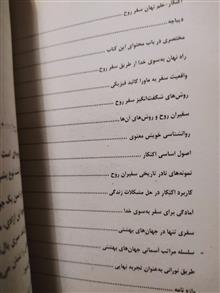 اکنکار -علم نهان سفر روح
دیباچه
مختصری در باب محتوای این کتاب
راه نهان به‌سوی خدا از طریق سفر روح
واقعیت سفر به ماورا کالبد فیزیکی
روش‌های شگفت‌انگیز سفر روح
سفیران روح و روش‌های آن‌ها
روانشناسی خویش معنوی
اصول اساسی اکنکار
نمونه‌های نادر تاریخی سفیران روح
کاربرد اکنکار در حل مشکلات زندگی
آمادگی برای سفر به‌سوی خدا
سفری تنها در جهان‌های بهشتی
سلسله مراتب آسمانی جهان‌های بهشتی
طریق نورانی به‌عنوان تجربه نهایی
واژه نامه